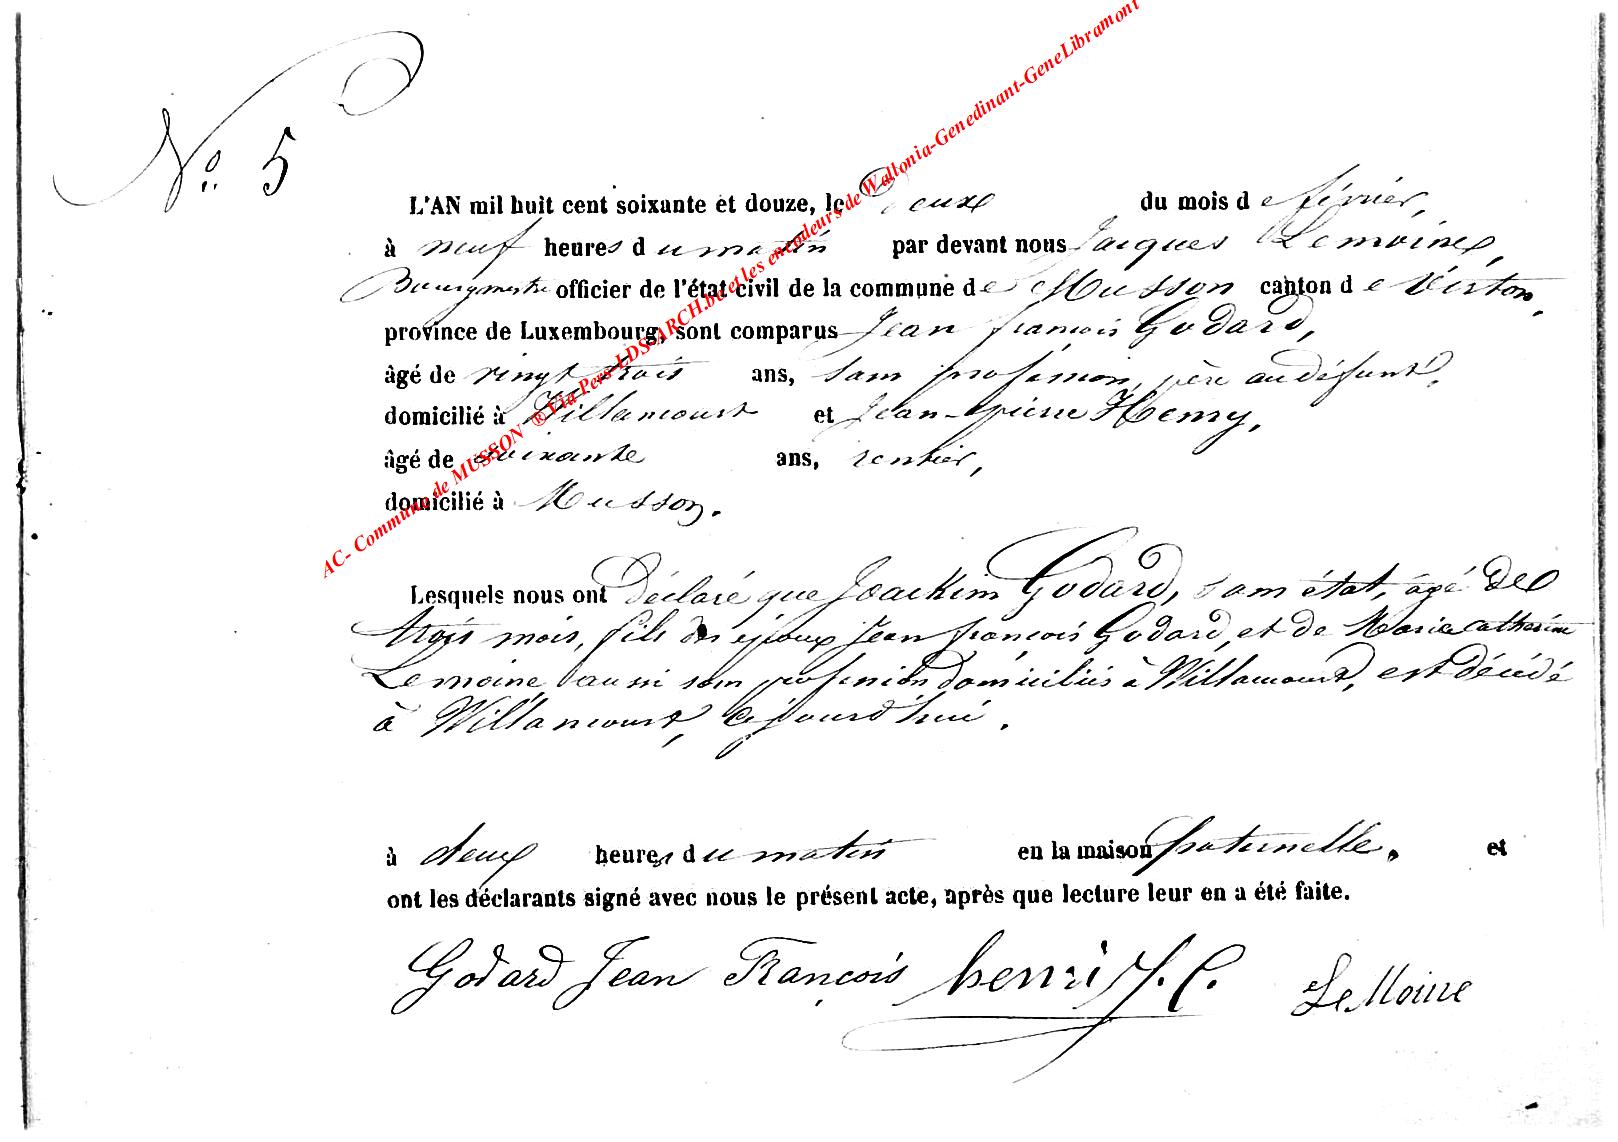 No. 5
L'AN mil huit cent soixante et douze, le Deux du mois de février,
à neuf heures du matin par devant nous Jacques Lemoine,
Bourgmestre officier de l'état civil de la commune de Musson canton de Virton,
province de Luxembourg, sont comparus Jean françois Godard,
âgé de vingt trois ans, sans profession, père au défunt,
domicilié à Willancourt et Jean-pierre Henry,
âgé de soixante ans, rentier,
domicilié à Musson.
Lesquels nous ont Déclaré que Joackim Godard, sans état, âgé de
trois mois, fils des époux Jean françois Godard, et de Marie Catherine
Lemoine aussi sans profession domiciliés à Willancourt, est décédé
à Willancourt, cejourd'hui.
à deux heures du matin en la maison paternelle. et
ont les déclarants signé avec nous le présent acte, après que lecture leur en a été faite.
Godard Jean François henri J. P. Le Moine
AC- Commune de MUSSON ® Via Pers-LDS-ARCH.be et les encodeurs de Wallonia-Genedinant-GeneLibramont